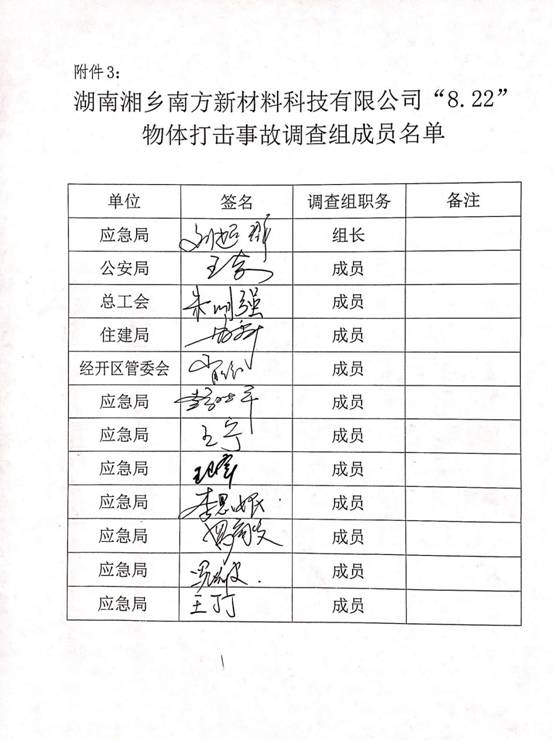 附件3：
湖南湘乡南方新材料科技有限公司“8.22”
物体打击事故调查组成员名单
单位 签名 调查组职务 备注
应急局 组长
公安局 成员
总工会 朱刚强 成员
住建局 成员
经开区管委会 成员
应急局 成员
应急局 王宁 成员
应急局 成员
应急局 李思 成员
应急局 成员
应急局 成员
应急局 王丁 成员